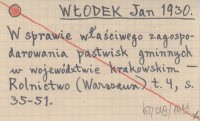 WŁODEK Jan 1930.
W sprawie właściwego zagospo-
darowania pastwisk gminnych
w województwie krakowskim –
Rolnictwo (Warszawa) t. 4, s.
35-51.